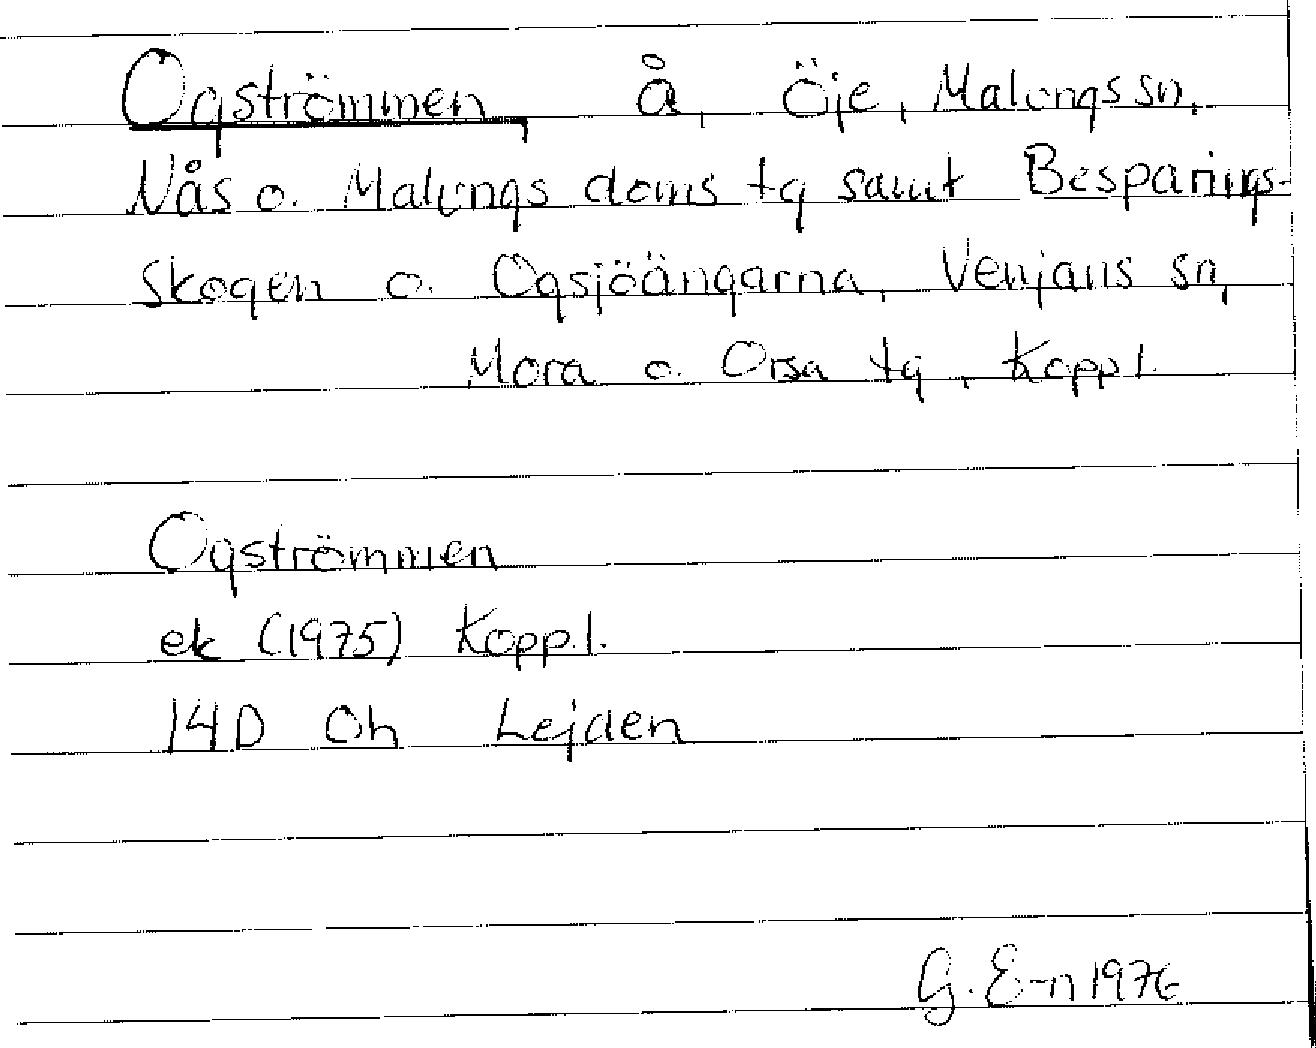 Ogströmmen, å, Öje, Malungs sn,
Nås o. Malungs doms tg samt Besparings-
skogen o. Ogsjöängarna, Venjans sn,
Mora o. Orsa tg, Koppl.
Ogströmmen
ek (1975) Kopp.l.
14D 0h Lejden
G. E-n 1976